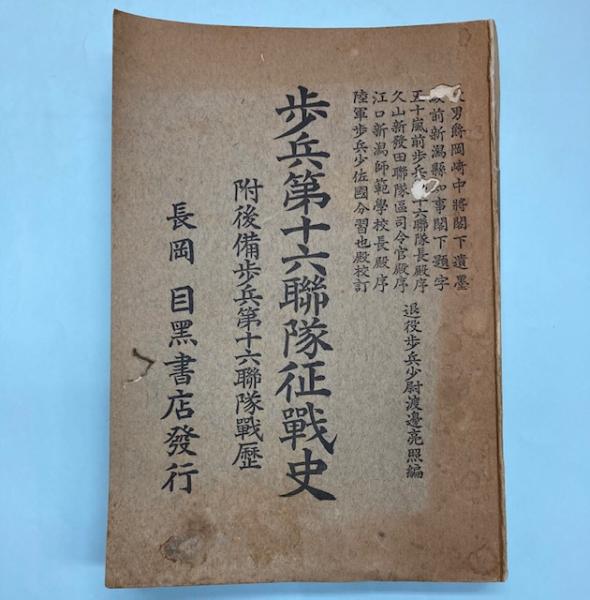 男爵岡崎中將閣下遺墨
前新潟縣知事閣下題字
五十嵐前歩兵十六聯隊長殿序
久山新發田聯隊區司令官殿序
江口新潟師範學校長殿序
陸軍歩兵少佐國分習也殿校訂
退役歩兵少尉渡邊亮照編
歩兵第十六聯隊征戰史
附後備歩兵第十六聯隊戰歴
長岡 目黑書店發行